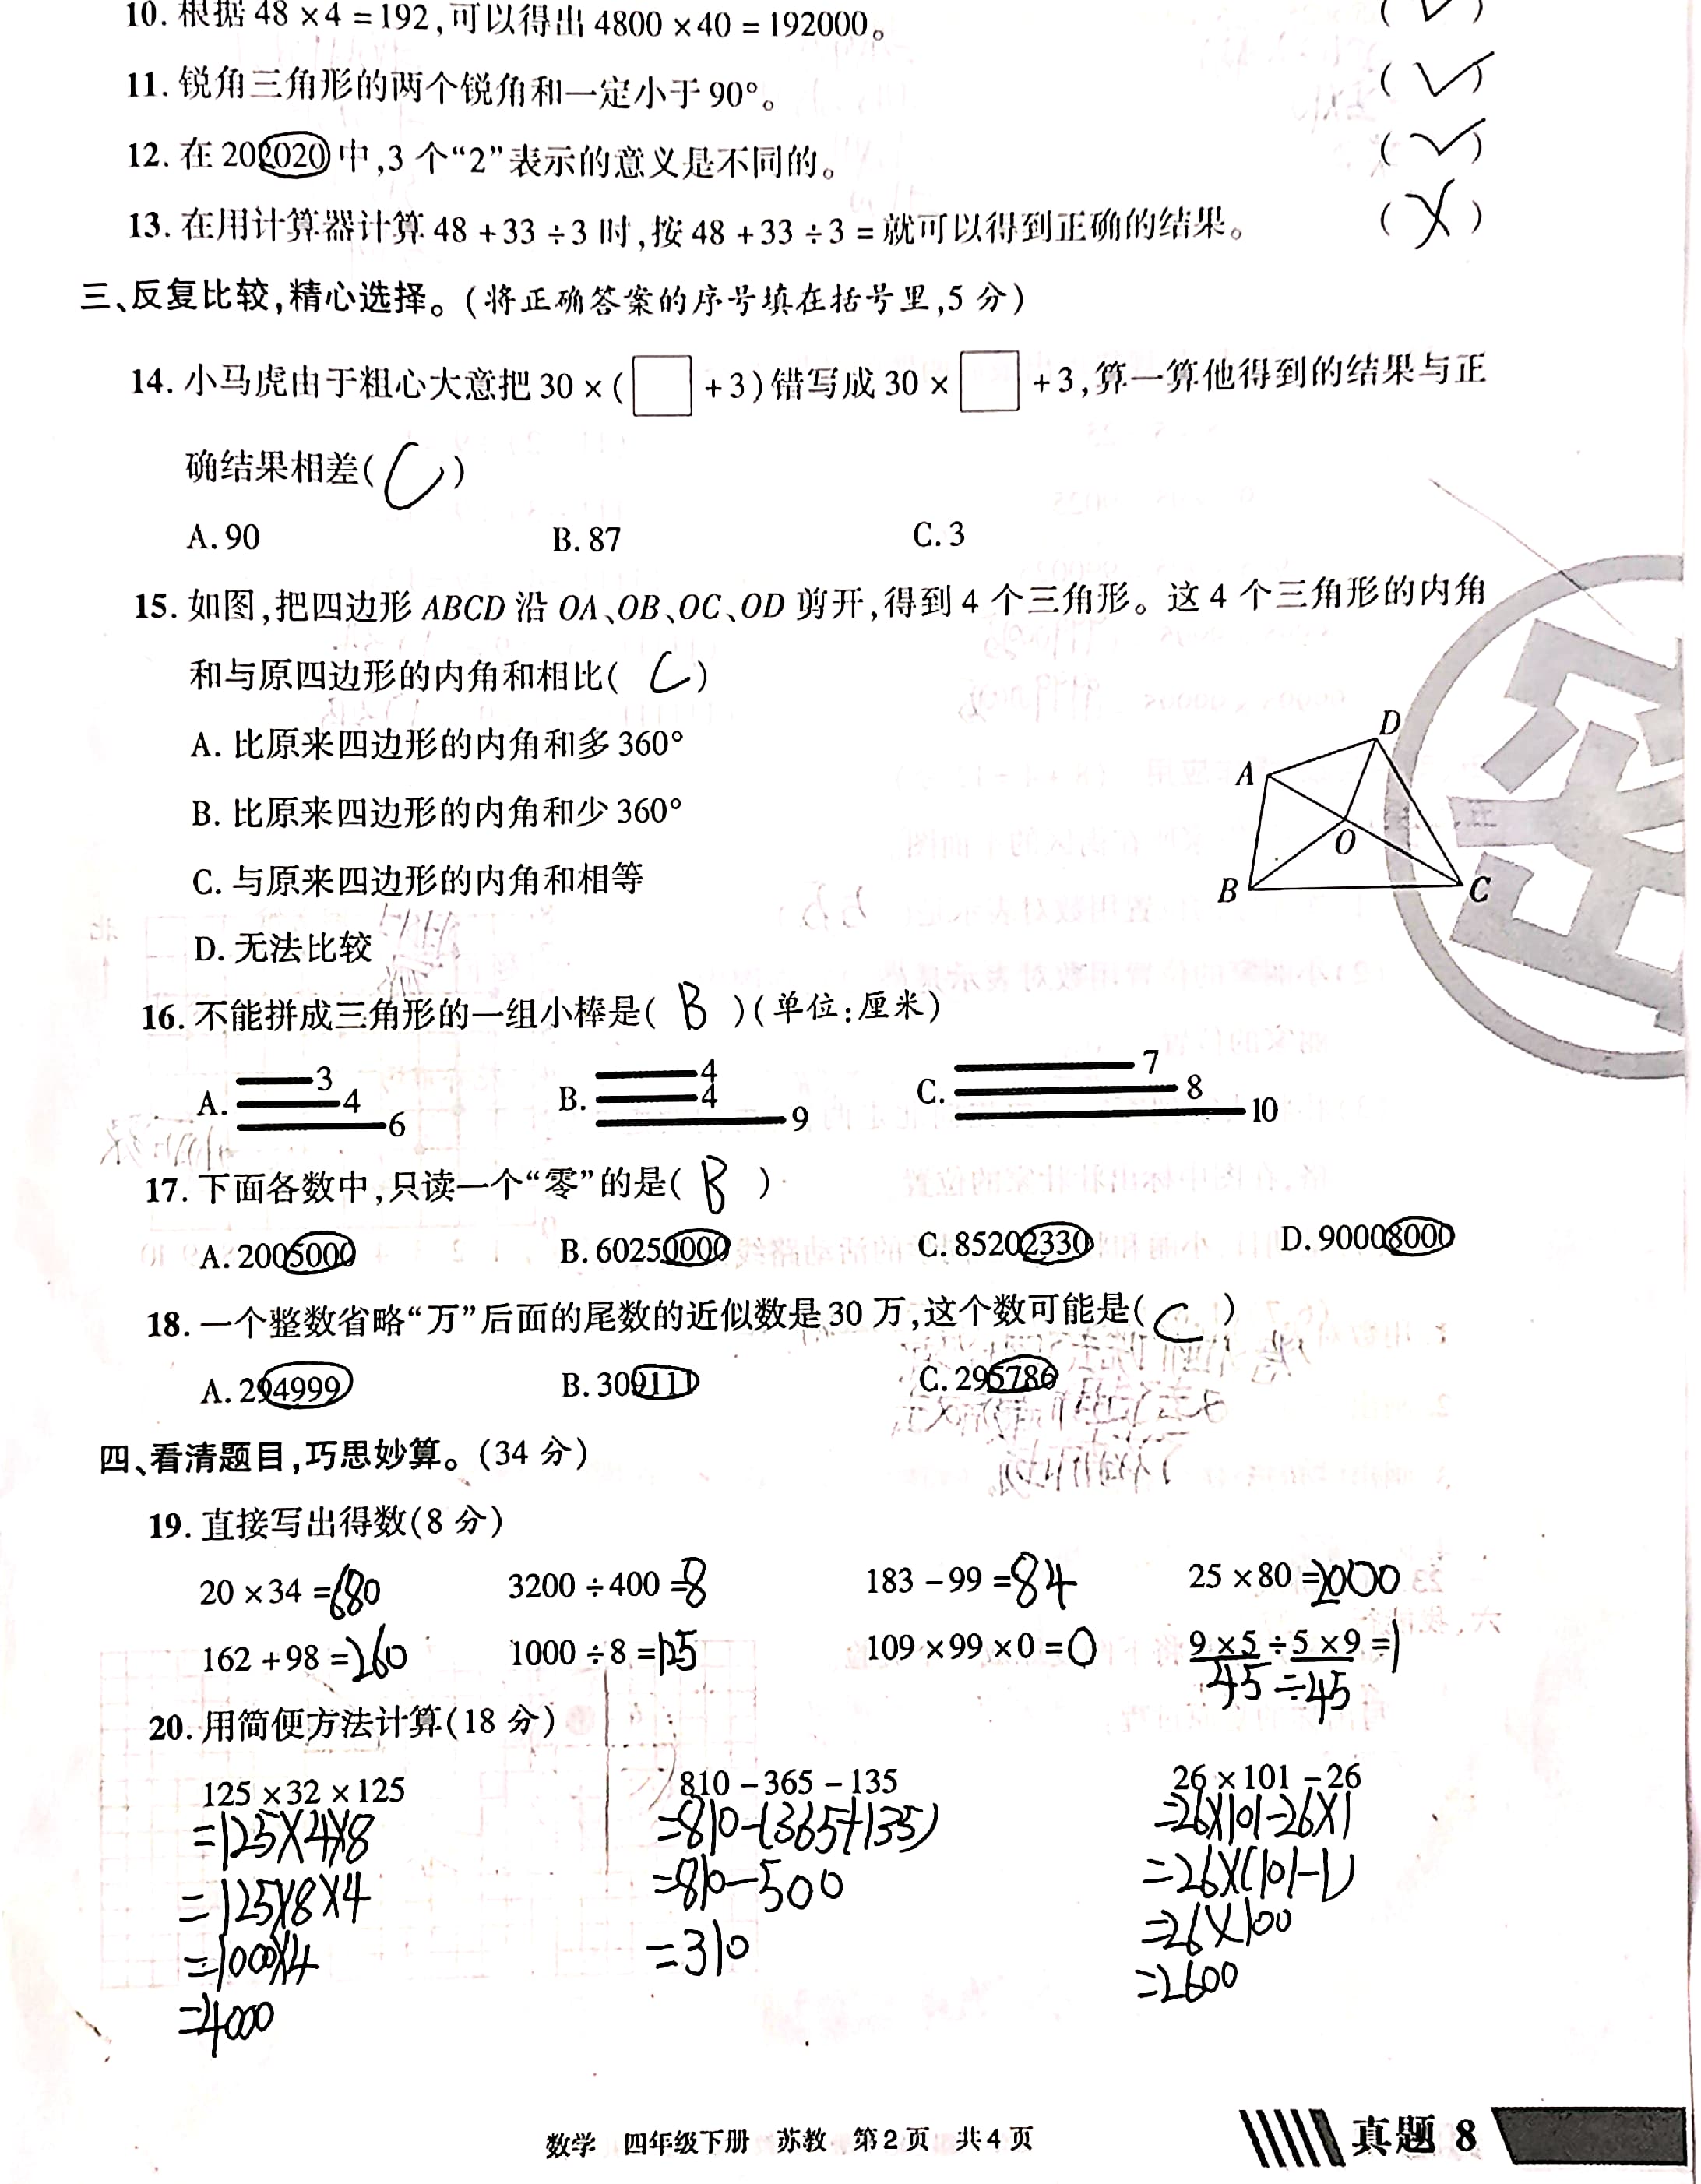 10. 根据 48 ×4 =192,可以得出 4800 ×40 = 192000。 (✓)
11. 锐角三角形的两个锐角和一定小于 90°。 (✓)
12. 在 202020 中,3 个“2”表示的意义是不同的。 (✓)
13. 在用计算器计算 48 +33 ÷3 时,按 48 +33 ÷3 = 就可以得到正确的结果。 (X)
三、反复比较,精心选择。(将正确答案的序号填在括号里,5 分)
14. 小马虎由于粗心大意把 30 ×(□ +3)错写成 30 ×□ +3,算一算他得到的结果与正
确结果相差( C )
A. 90 B. 87 C. 3
15. 如图,把四边形 ABCD 沿 OA、OB、OC、OD 剪开,得到 4 个三角形。这 4 个三角形的内角
和与原四边形的内角和相比( C )
A. 比原来四边形的内角和多 360°
B. 比原来四边形的内角和少 360°
C. 与原来四边形的内角和相等
D. 无法比较
D
A
O
B C
16. 不能拼成三角形的一组小棒是( B )(单位:厘米)
A. 3 4 6 B. 4 4 9 C. 7 8 10
17. 下面各数中,只读一个“零”的是( B )
A. 2005000 B. 60250000 C. 85202330 D. 90008000
18. 一个整数省略“万”后面的尾数的近似数是 30 万,这个数可能是( C )
A. 294999 B. 309111 C. 295786
四、看清题目,巧思妙算。(34 分)
19. 直接写出得数(8 分)
20 ×34 =680 3200 ÷400 =8 183 -99 =84 25 ×80 =2000
162 +98 =260 1000 ÷8 =125 109 ×99 ×0 =0 9 ×5 ÷5 ×9 =1
45÷45
20. 用简便方法计算(18 分)
125 ×32 ×125 810 -365 -135 26 ×101 -26
=125×4×8 =810-(365+135) =26×101-26×1
=125×8×4 =810-500 =26×(101-1)
=1000×4 =310 =26×100
=4000 =2600
数学 四年级下册 苏教 第2页 共4页
真题 8